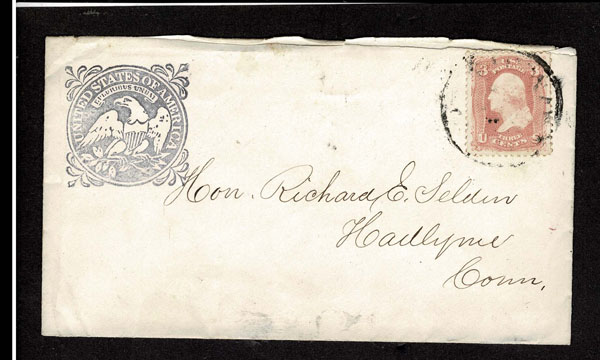 UNITED STATES OF AMERICA
E PLURIBUS UNUM
3 3
U.S. POSTAGE
U THREE CENTS
Hon. Richard E. Selden
Hadlyme
Conn.